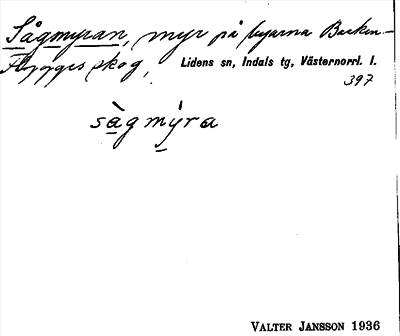 Sågmyran, myr på byarna Backen-
Flygges skog, Lidens sn, Indals tg, Västernorrl. l.
397
sàg mýra
VALTER JANSSON 1936